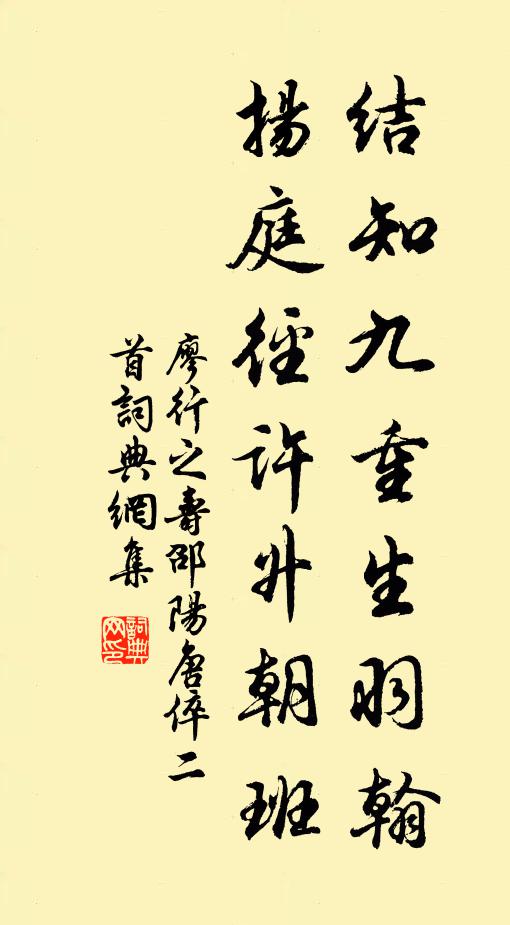 結知九重生羽翰
揚庭徑許升朝班
廖行之壽邵陽唐倅二
首詞典網集
詞典網印